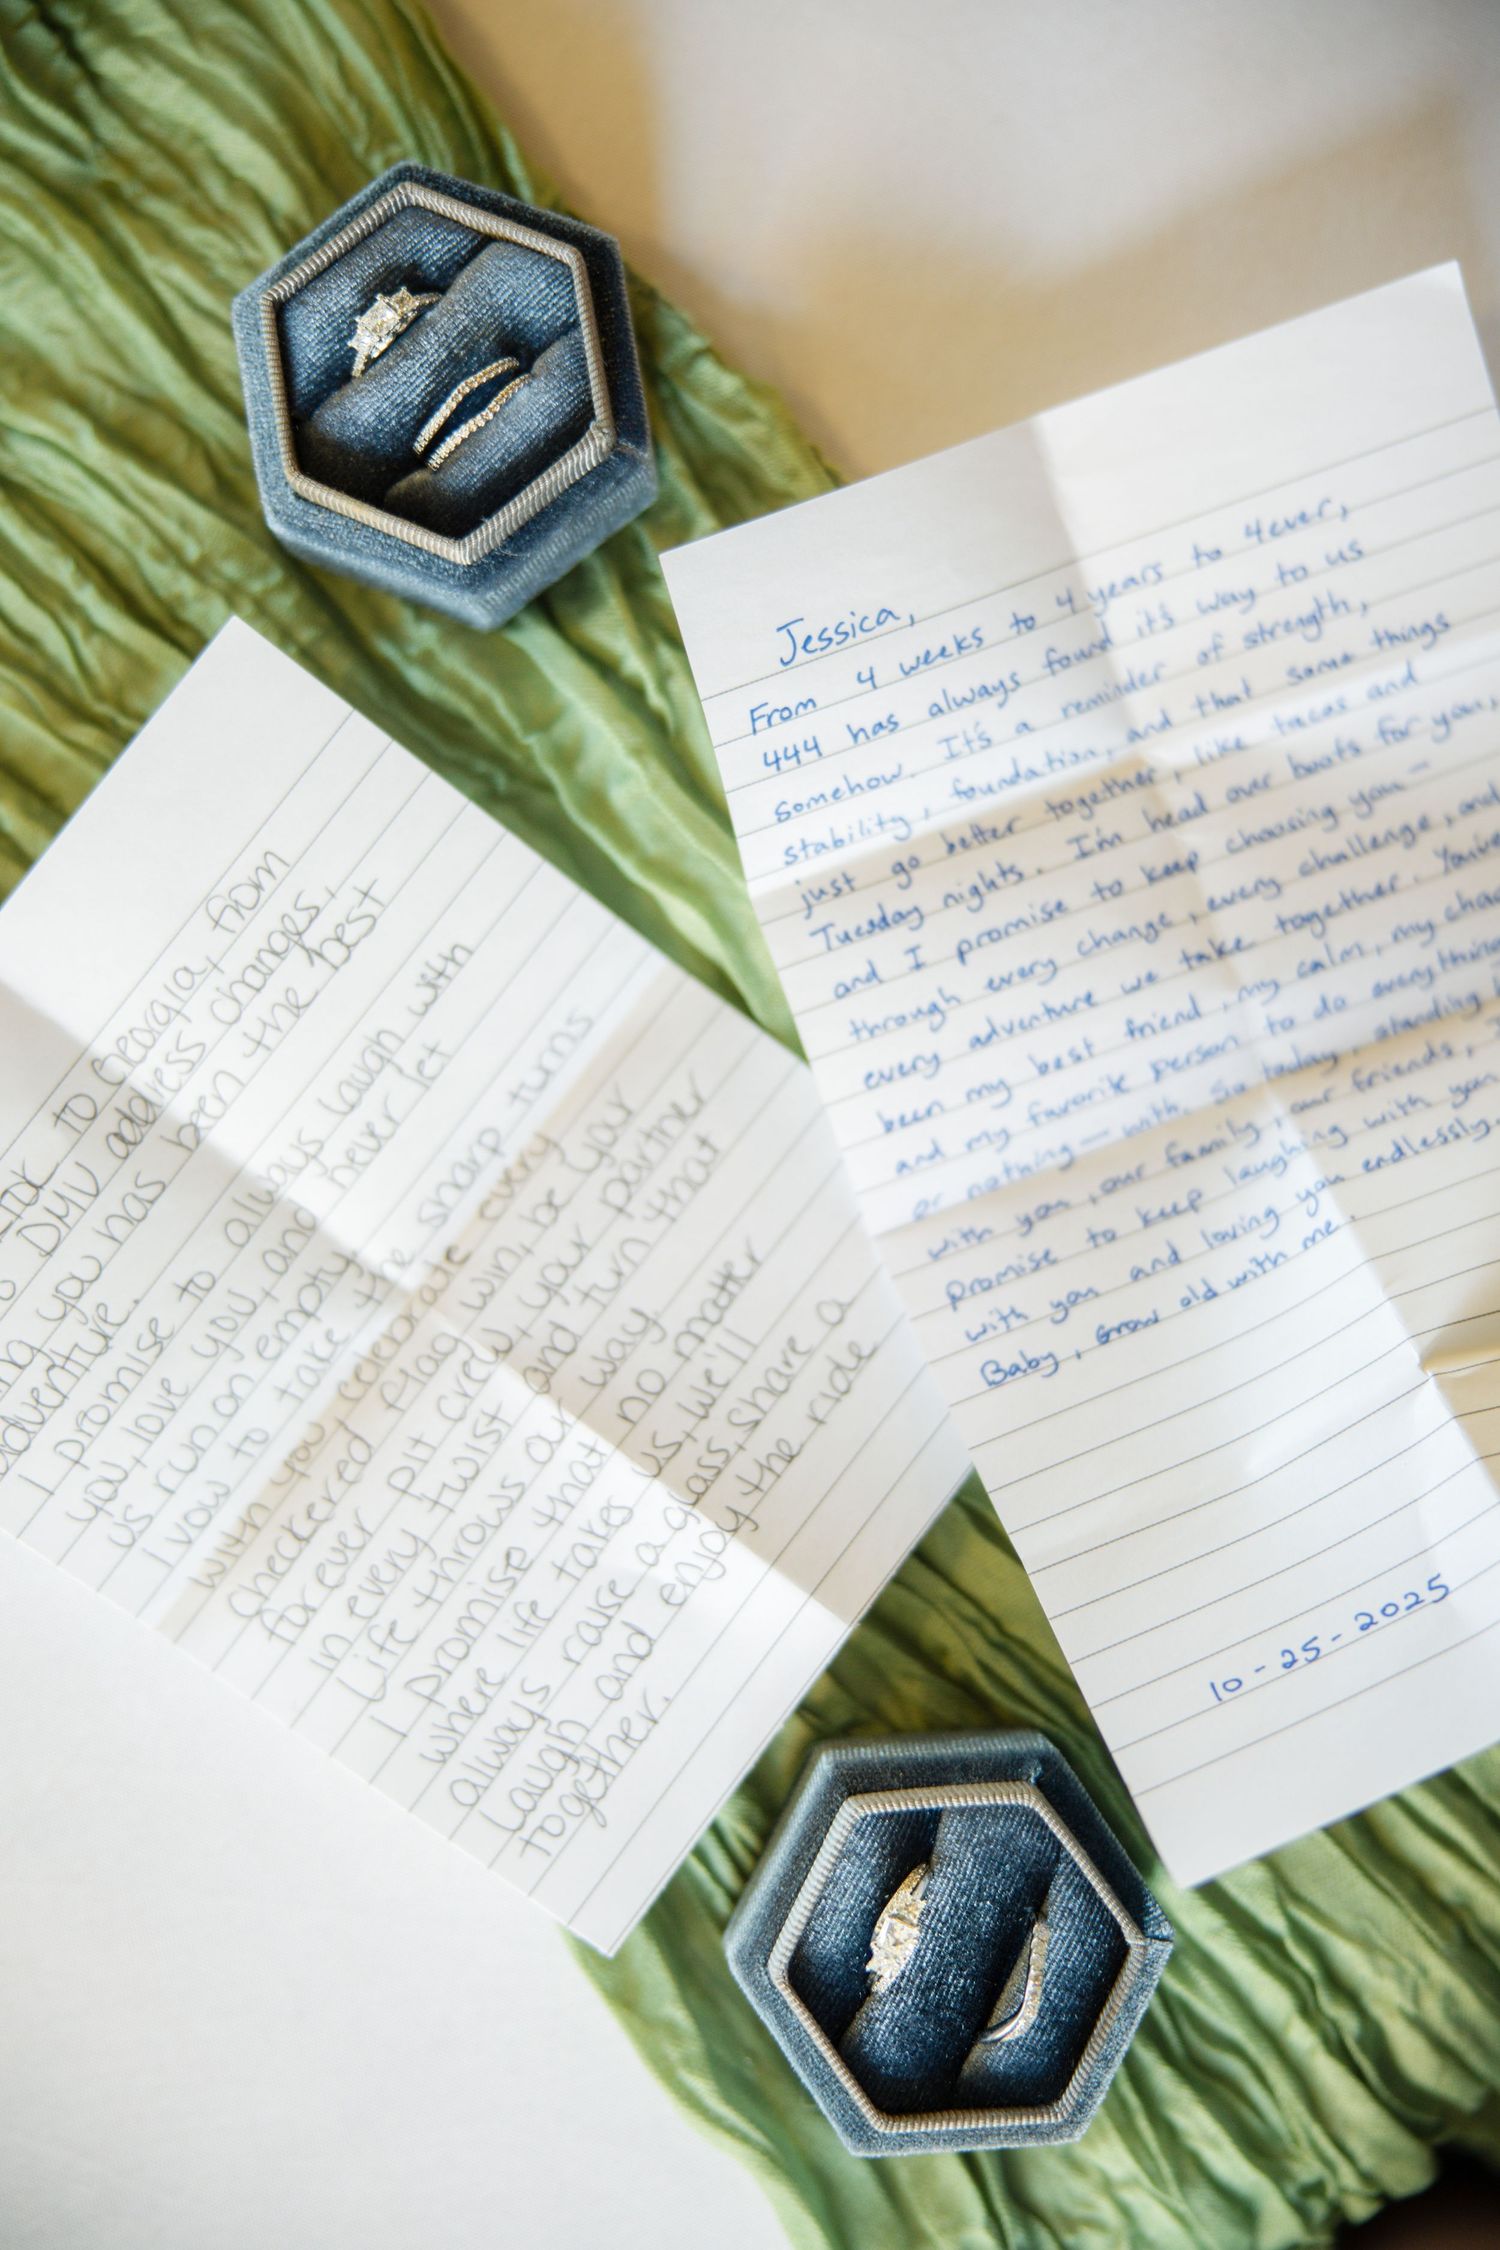 to Georgia, from
DMV address changes,
you has been the best
adventure.
I promise to always laugh with
you, love you, and never let
us run on empty.
I vow to take the sharp turns
with you, celebrate every
checkered flag win, be your
forever pit crew, your partner
in every twist and turn that
Life throws our way.
I promise that no matter
where life takes us, we'll
always raise a glass, share a
laugh and enjoy the ride
together.
Jessica,
From 4 weeks to 4 years to 4ever,
444 has always found it's way to us
somehow. It's a reminder of strength,
stability, foundation, and that some things
just go better together, like tacos and
Tuesday nights. I'm head over boots for you,
and I promise to keep choosing you —
through every change, every challenge, and
every adventure we take together. You've
been my best friend, my calm, my chaos
and my favorite person to do everything
or nothing — with. So today, standing
with you, our family, our friends, I
promise to keep laughing with you
with you and loving you endlessly.
Baby, Grow old with me.
10-25-2025